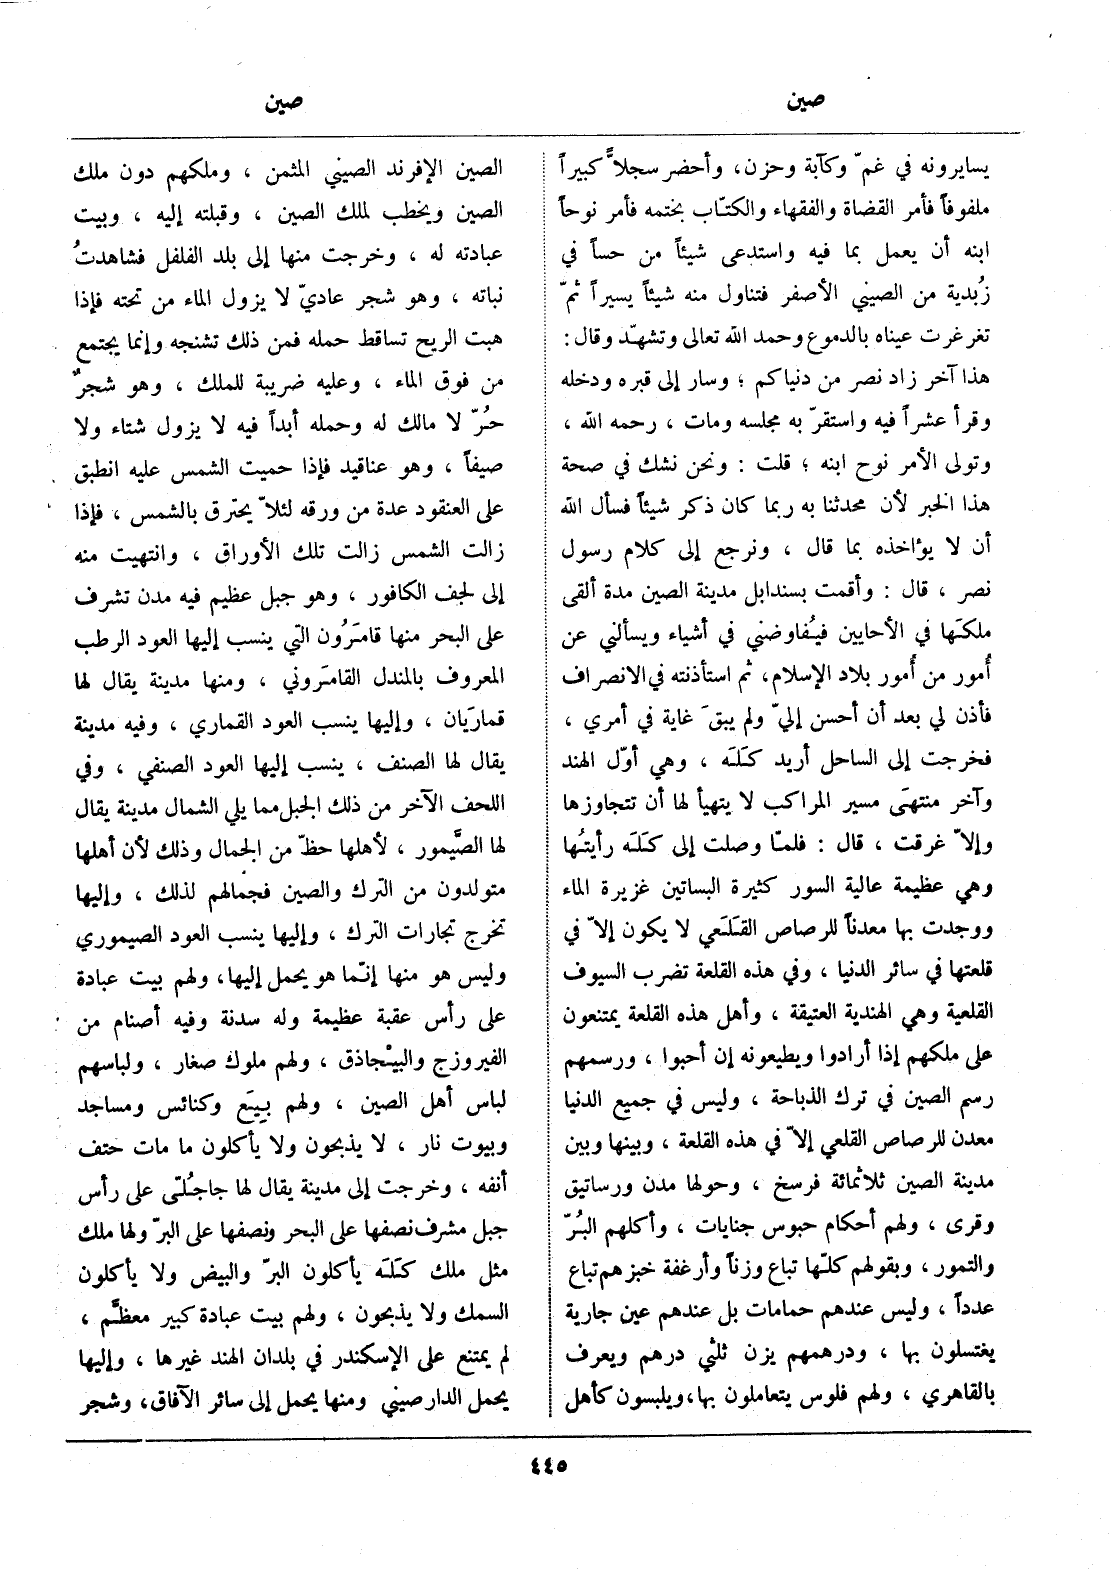 صين
صين
يسايرونه في غمّ وكآبة وحزن، وأحضر سجلاًّ كبيراً
ملفوفاً فأمر القضاة والفقهاء والكتّاب بختمه فأمر نوحاً
ابنه أن يعمل بما فيه واستدعى شيئاً من حساً في
زُبدية من الصيني الأصفر فتناول منه شيئاً يسيراً ثمّ
تغرغرت عيناه بالدموع وحمد الله تعالى وتشهّد وقال :
هذا آخر زاد نصر من دنياكم ؛ وسار إلى قبره ودخله
وقرأ عشراً فيه واستقرّ به مجلسه ومات ، رحمه الله ،
وتولى الأمر نوح ابنه ؛ قلت : ونحن نشك في صحة
هذا الخبر لأن محدثنا به ربما كان ذكر شيئاً فسأل الله
أن لا يؤاخذه بما قال ، ونرجع إلى كلام رسول
نصر ، قال : وأقمت بسندابل مدينة الصين مدة ألقى
ملكَها في الأحايين فيُفاوضني في أشياء ويسألني عن
أُمور من أُمور بلاد الإسلام، ثم استأذنته في الانصراف
فأذن لي بعد أن أحسن إليّ ولم يبقَ غاية في أمري ،
فخرجت إلى الساحل أريد كَلَه ، وهي أوّل الهند
وآخر منتهَى مسير المراكب لا يتهيأ لها أن تتجاوزها
وإلاّ غرقت ، قال : فلمّا وصلت إلى كَلَه رأيتُها
وهي عظيمة عالية السور كثيرة البساتين غزيرة الماء
ووجدت بها معدناً للرصاص القَلَعي لا يكون إلاّ في
قلعتها في سائر الدنيا ، وفي هذه القلعة تضرب السيوف
القلعية وهي الهندية العتيقة ، وأهل هذه القلعة يمتنعون
على ملكهم إذا أرادوا ويطيعونه إن أحبوا ، ورسمهم
رسم الصين في ترك الذباحة ، وليس في جميع الدنيا
معدن للرصاص القلعي إلاّ في هذه القلعة ، وبينها وبين
مدينة الصين ثلاثمائة فرسخ ، وحولها مدن ورساتيق
وقرى ، ولهم أحكام حبوس جنايات ، وأكلهم البُرّ
والتمور ، وبقولهم كلّها تباع وزناً وأرغفة خبزهم تباع
عدداً ، وليس عندهم حمامات بل عندهم عين جارية
يغتسلون بها ، ودرهمهم يزن ثلثي درهم ويعرف
بالقاهري ، ولهم فلوس يتعاملون بها، ويلبسون كأهل
الصين الإفرند الصيني المثمن ، وملكهم دون ملك
الصين ويخطب لملك الصين ، وقبلته إليه ، وبيت
عبادته له ، وخرجت منها إلى بلد الفلفل فشاهدتُ
نباته ، وهو شجر عاديّ لا يزول الماء من تحته فإذا
هبت الريح تساقط حمله فمن ذلك تشنجه وإنما يجتمع
من فوق الماء ، وعليه ضريبة للملك ، وهو شجرٌ
حُرّ لا مالك له وحمله أبداً فيه لا يزول شتاء ولا
صيفاً ، وهو عناقيد فإذا حميت الشمس عليه انطبق
على العنقود عدة من ورقه لئلاّ يحترق بالشمس ، فإذا
زالت الشمس زالت تلك الأوراق ، وانتهيت منه
إلى لجف الكافور ، وهو جبل عظيم فيه مدن تشرف
على البحر منها قامَرُون التي ينسب إليها العود الرطب
المعروف بالمندل القامَروني ، ومنها مدينة يقال لها
قماريَان ، وإليها ينسب العود القماري ، وفيه مدينة
يقال لها الصنف ، ينسب إليها العود الصنفي ، وفي
اللحف الآخر من ذلك الجبل مما يلي الشمال مدينة يقال
لها الصَّيمور ، لأهلها حظّ من الجمال وذلك لأن أهلها
متولدون من الترك والصين فجمالهم لذلك ، وإليها
تخرج تجارات الترك ، وإليها ينسب العود الصيموري
وليس هو منها إنّما هو يحمل إليها، ولهم بيت عبادة
على رأس عقبة عظيمة وله سدنة وفيه أصنام من
الفيروزج والبيْجاذق ، ولهم ملوك صغار ، ولباسهم
لباس أهل الصين ، ولهم بِيَع وكنائس ومساجد
وبيوت نار ، لا يذبحون ولا يأكلون ما مات حتف
أنفه ، وخرجت إلى مدينة يقال لها جاجُلّى على رأس
جبل مشرف نصفها على البحر ونصفها على البرّ ولها ملك
مثل ملك كَلَه يأكلون البرّ والبيض ولا يأكلون
السمك ولا يذبحون ، ولهم بيت عبادة كبير معظَّم ،
لم يمتنع على الإسكندر في بلدان الهند غيرها ، وإليها
يحمل الدارصيني ومنها يحمل إلى سائر الآفاق، وشجر
٤٤٥